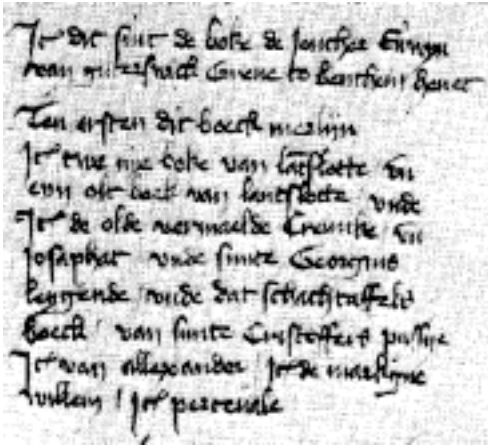 It dit sint de boke de joncher Everwyn
van guterswick Greve to benthem hevet
Ten ersten dit boeck merlijn
It twe nije boke van lantslotte un
eyn olt boek van lantslotte unde
It de olde vermaelde Cronike un
josaphat unde sunte Georgius
legende unde dat schachtaffels
boeck / van sunte Cristoffers passije
It van allexander / It de markgrve
willem / It percevale